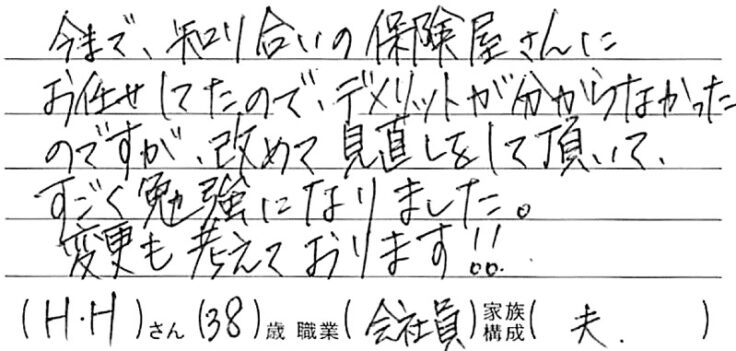 今まで、知り合いの保険屋さんに
お任せしてたので、デメリットが分からなかった
のですが、改めて見直しをして頂いて、
すごく勉強になりました。
変更も考えております!!
(H・H)さん(38)歳 職業(会社員)家族構成(夫.)